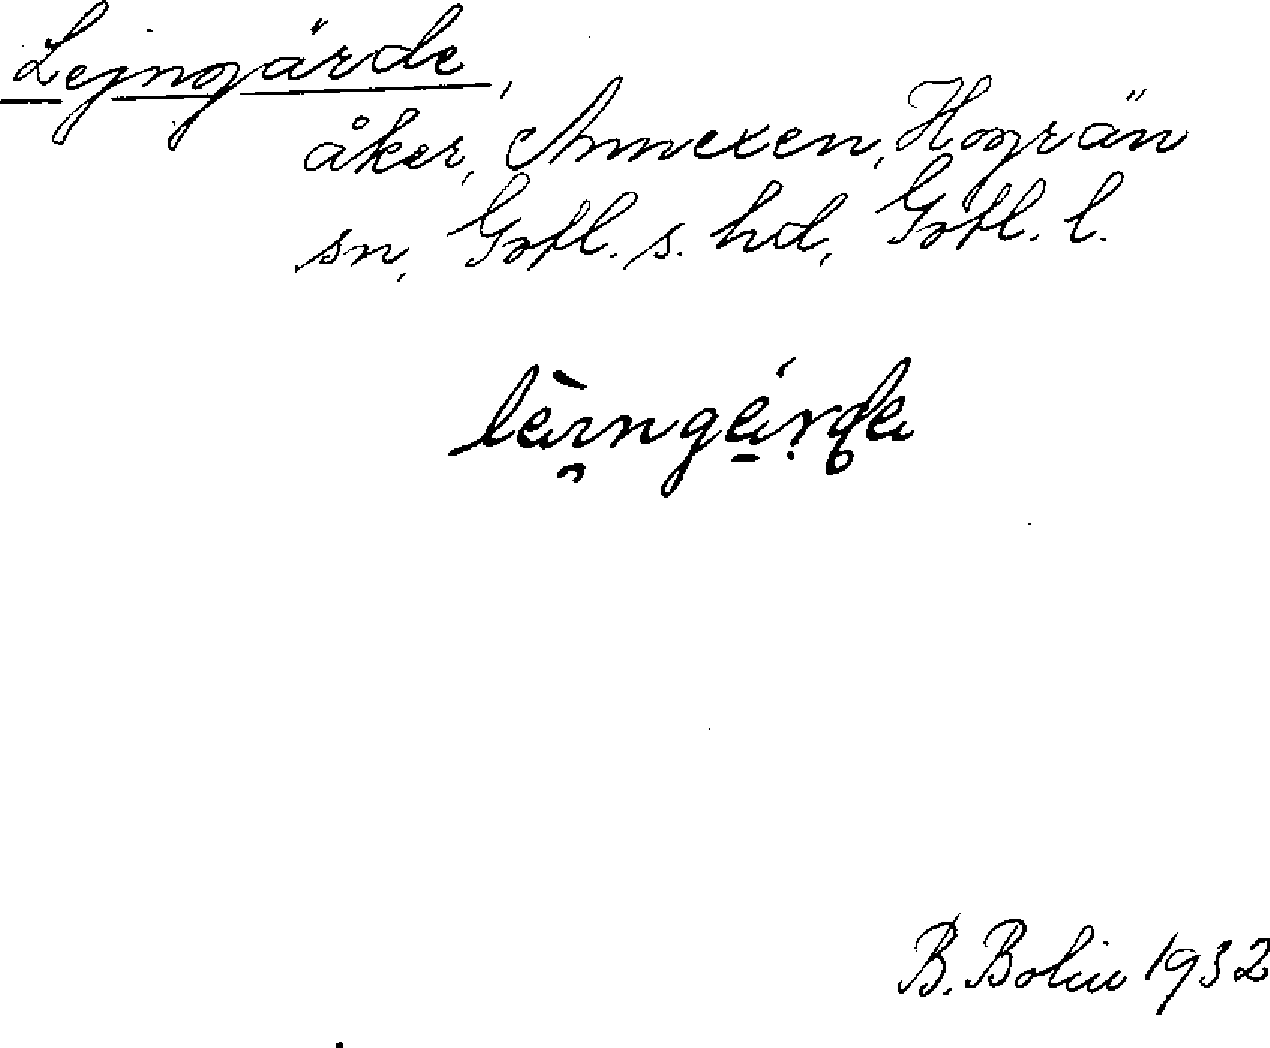 Lejngärde,
åker, Annexen, Hogrän
sn, Gotl. s. hd, Gotl. l.
B. Bolin 1932